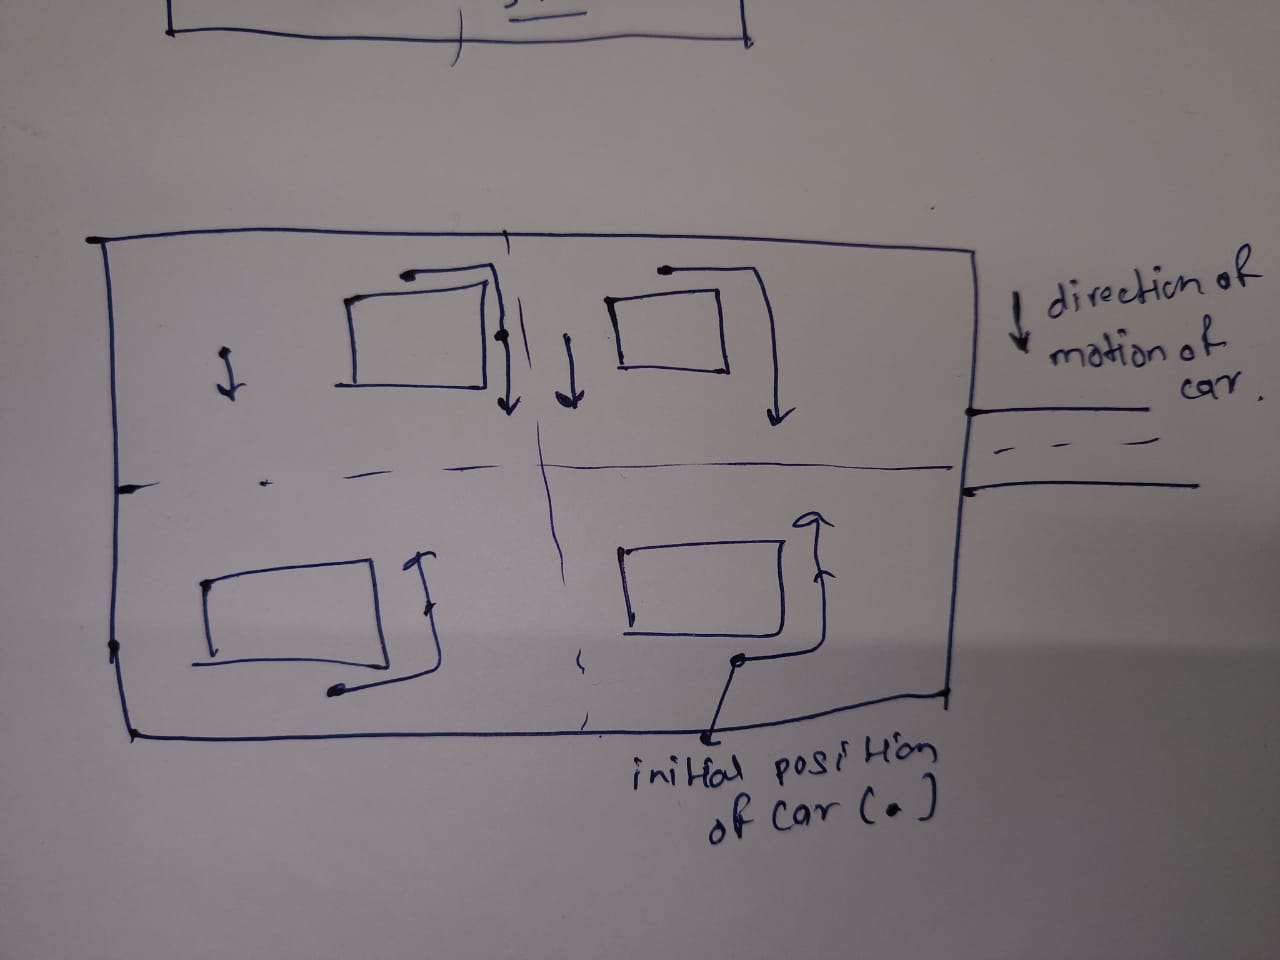 direction of
motion of
car.
initial position
of car (.)